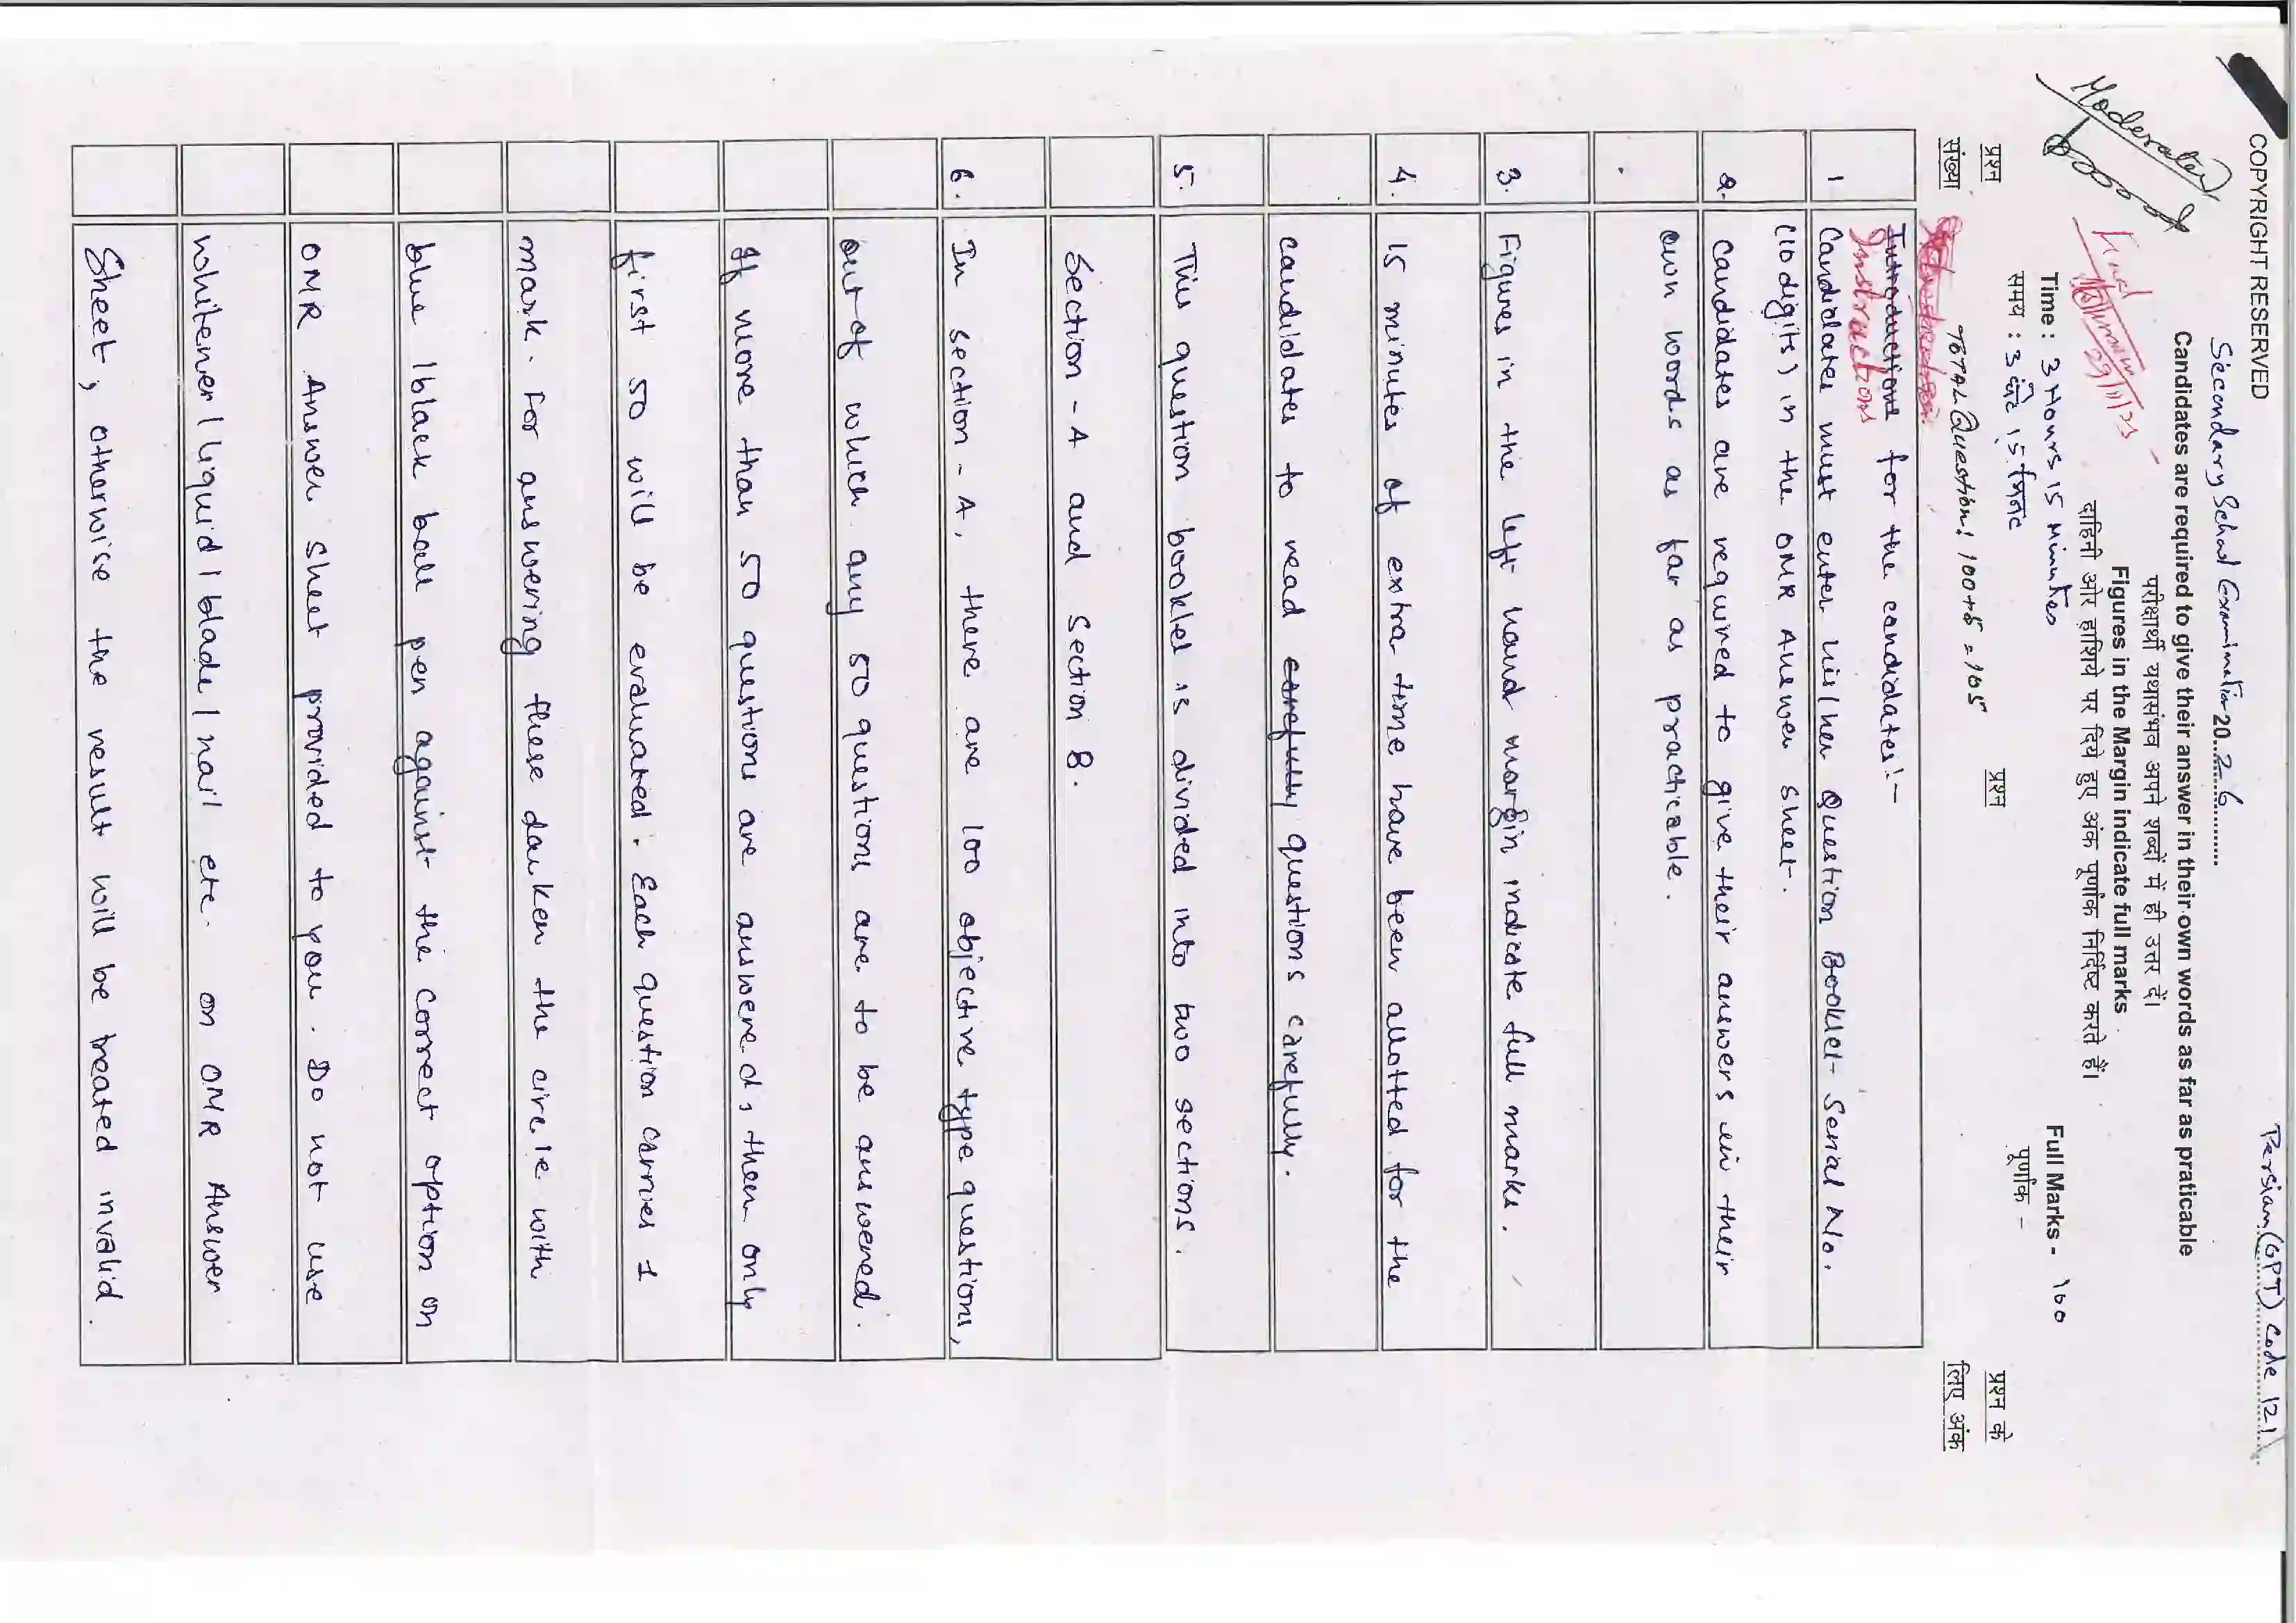 COPYRIGHT RESERVED
Persian (GPT) Code 121
Secondary School Examination 2026
Candidates are required to give their answer in their own words as far as praticable
परीक्षार्थी यथासंभव अपने शब्दों में ही उत्तर दें।
Figures in the Margin indicate full marks
दाहिनी ओर हाशिये पर दिये हुए अंक पूर्णांक निर्दिष्ट करते हैं।
Moderated
Final
Time : 3 Hours 15 Minutes
Full Marks - 100
समय : 3 घंटे 15 मिनट
पूर्णांक -
प्रश्न संख्या
प्रश्न
प्रश्न के लिए अंक
TOTAL Question: 100+5 = 105
Instructions for the candidates:-
1 Candidates must enter his/her Question Booklet Serial No.
(10 digits) in the OMR Answer Sheet.
2. Candidates are required to give their answers in their
own words as far as practicable.
3. Figures in the left hand margin indicate full marks.
4. 15 minutes of extra time have been allotted for the
candidates to read carefully questions carefully.
5. This question booklet is divided into two sections.
Section - A and Section B.
6. In section - A, there are 100 objective type questions,
out of which any 50 questions are to be answered.
If more than 50 questions are answered, then only
first 50 will be evaluated. Each question carries 1
mark. For answering these darken the circle with
blue / black ball pen against the correct option on
OMR Answer Sheet provided to you. Do not use
whitener / liquid / blade / nail etc. on OMR Answer
Sheet, otherwise the result will be treated invalid.